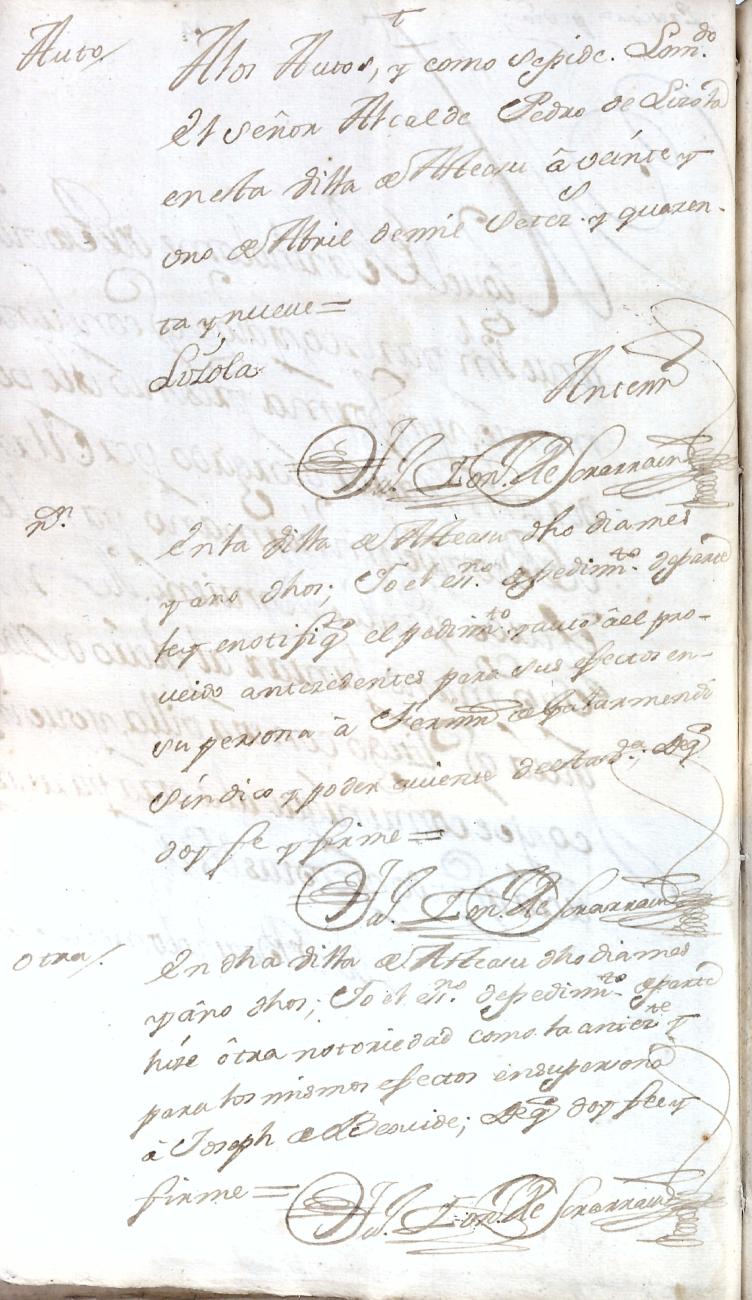 Auto/
A los Autos, y como se pide. Lo m.do
el señor Alcalde Pedro de Lizola
en esta Villa de Atteasu â veinte y
uno de Abril de mil setez.s y quaren-
ta y nueue=
Lizola
Antemi
Ju. Ign. de
n.on
En la Villa de Atteasu dho dia mes
y año dhos; Yo el es.no de pedim.to de parte
ley e notifiq el pedim.to y auto de el pro-
ueido antezedentes para sus efectos en-
su persona â Fermin de
síndico y poder auiente de esta v.a; de q
doy fe y firme=
Ju. Ign. de
otra/
En dha Villa de Atteasu dho dia mes
y año dhos; Yo el es.no de pedim.to de parte
hize ôtra notoriedad como la anter.te y
para los mismos efectos en su persona
â Joseph de; de q doy fee y
firme=
Ju. Ign. de